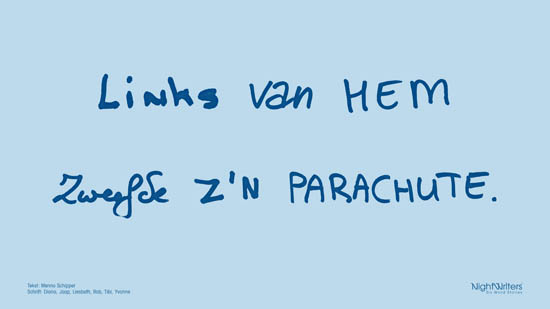 Links van HEM
Zweefde z'N PARACHUTE.
Tekst: Menno Schipper
Schrift: Diana, Joop, Liesbeth, Rob, Tibi, Yvonne
NightWriters
Six Word Stories